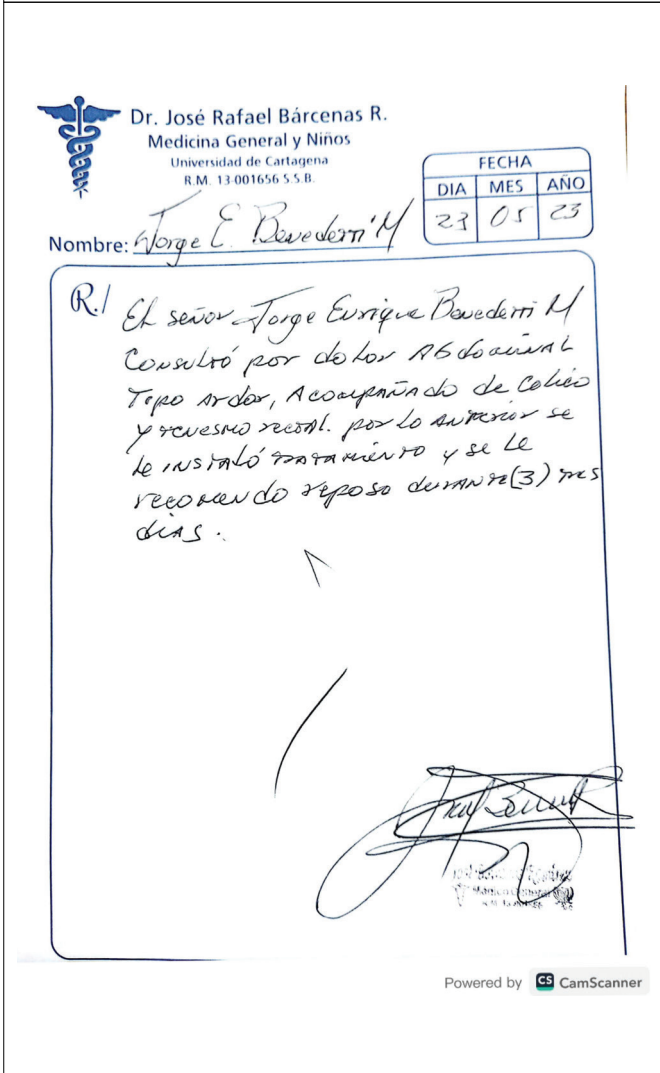 Dr. José Rafael Bárcenas R.
Medicina General y Niños
Universidad de Cartagena
R.M. 13-001656 S.S.B.
FECHA
DIA MES AÑO
23 05 23
Nombre: Jorge E. Benedetti M
R./
El señor Jorge Enrique Benedetti M
Consultó por dolor Abdominal
Tipo Ardor, Acompañado de Cólico
y tenesmo rectal. por lo anterior se
le instaló tratamiento y se le
recomendo reposo durante (3) tres
dias.
Powered by CS CamScanner